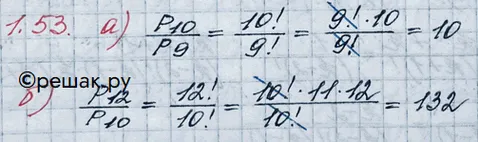 1.53. а) P10/P9 = 10!/9! = 9!·10/9! = 10
©решак.ру
б) P12/P10 = 12!/10! = 10!·11·12/10! = 132